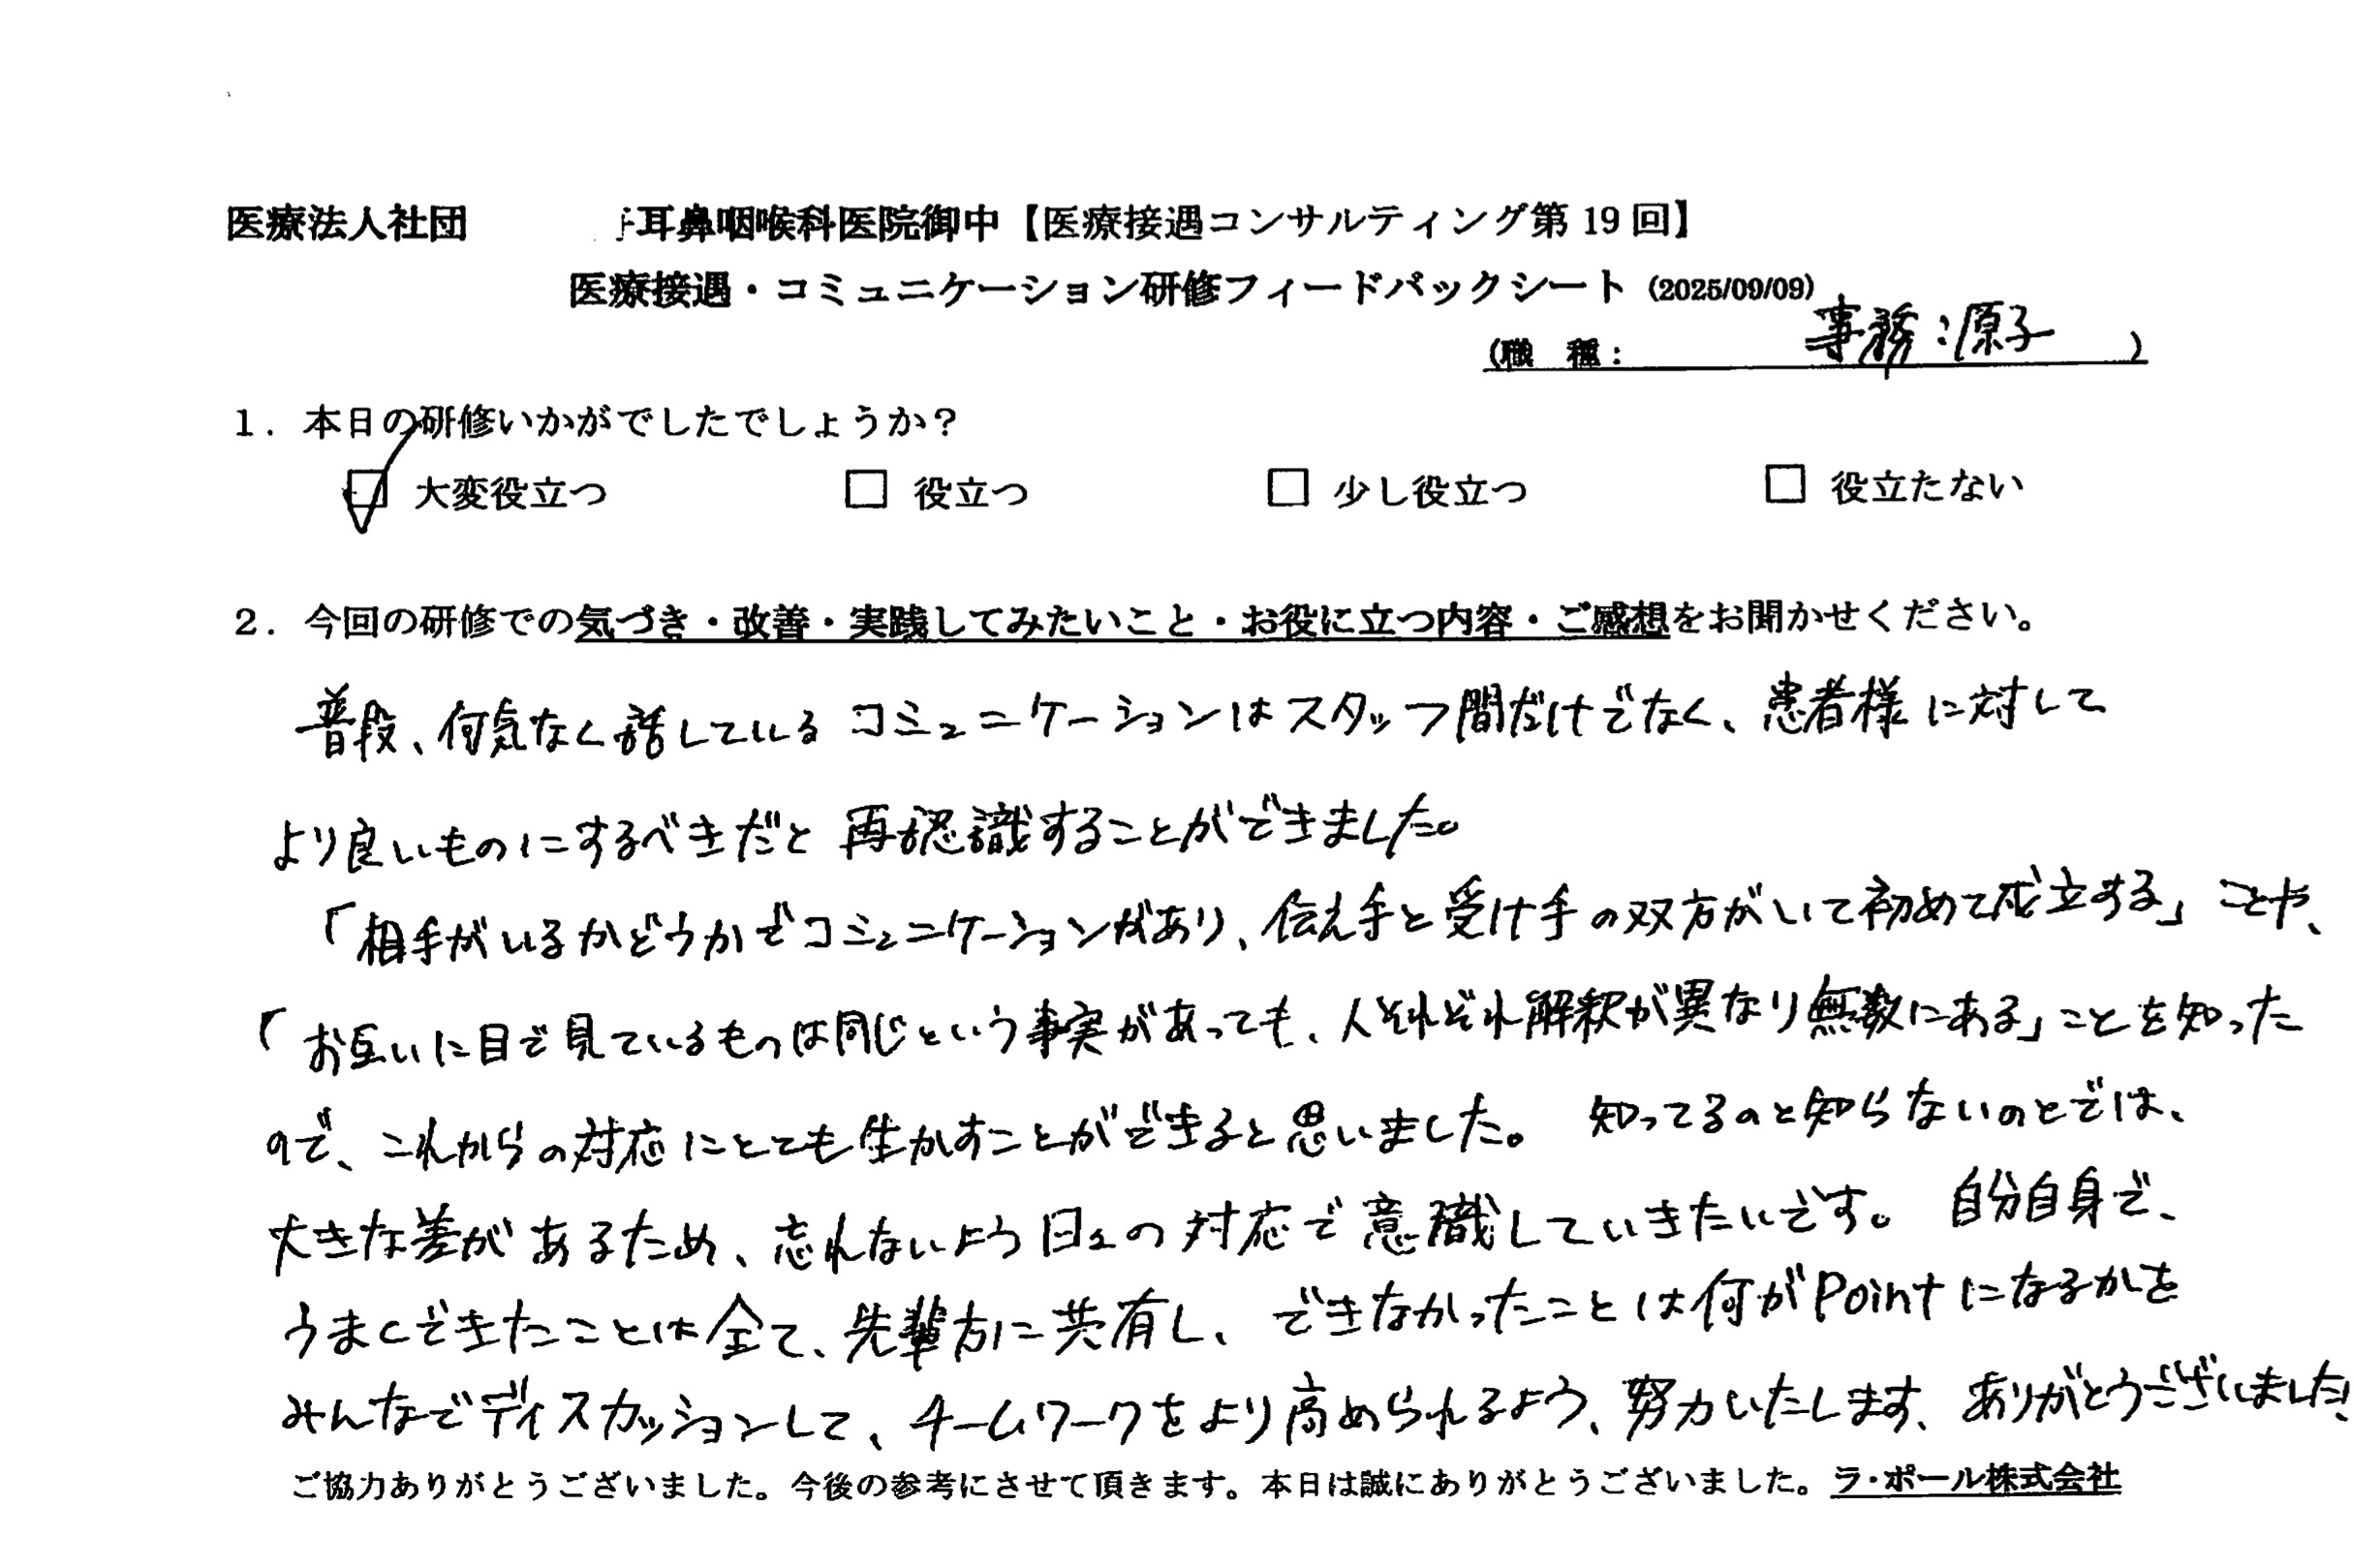 医療法人社団 耳鼻咽喉科医院御中【医療接遇コンサルティング第19回】
医療接遇・コミュニケーション研修フィードバックシート(2025/09/09)
(職 種: 事務:原子 )
1. 本日の研修いかがでしたでしょうか?
☑ 大変役立つ □ 役立つ □ 少し役立つ □ 役立たない
2. 今回の研修での気づき・改善・実践してみたいこと・お役に立つ内容・ご感想をお聞かせください。
普段、何気なく話しているコミュニケーションはスタッフ間だけでなく、患者様に対して
より良いものにするべきだと再認識することができました。
「相手がいるかどうかでコミュニケーションがあり、伝え手と受け手の双方がいて初めて成立する」ことや、
「お互いに目で見ているものは同じという事実があっても、人それぞれ解釈が異なり無数にある」ことを知った
ので、これからの対応にとても生かすことができると思いました。知ってるのと知らないのとでは、
大きな差があるため、忘れないよう日々の対応で意識していきたいです。自分自身で、
うまくできたことは全て、先輩方に共有し、できなかったことは何がPointになるかを
みんなでディスカッションして、チームワークをより高められるよう、努力いたします、ありがとうございました!
ご協力ありがとうございました。今後の参考にさせて頂きます。本日は誠にありがとうございました。ラ・ポール株式会社